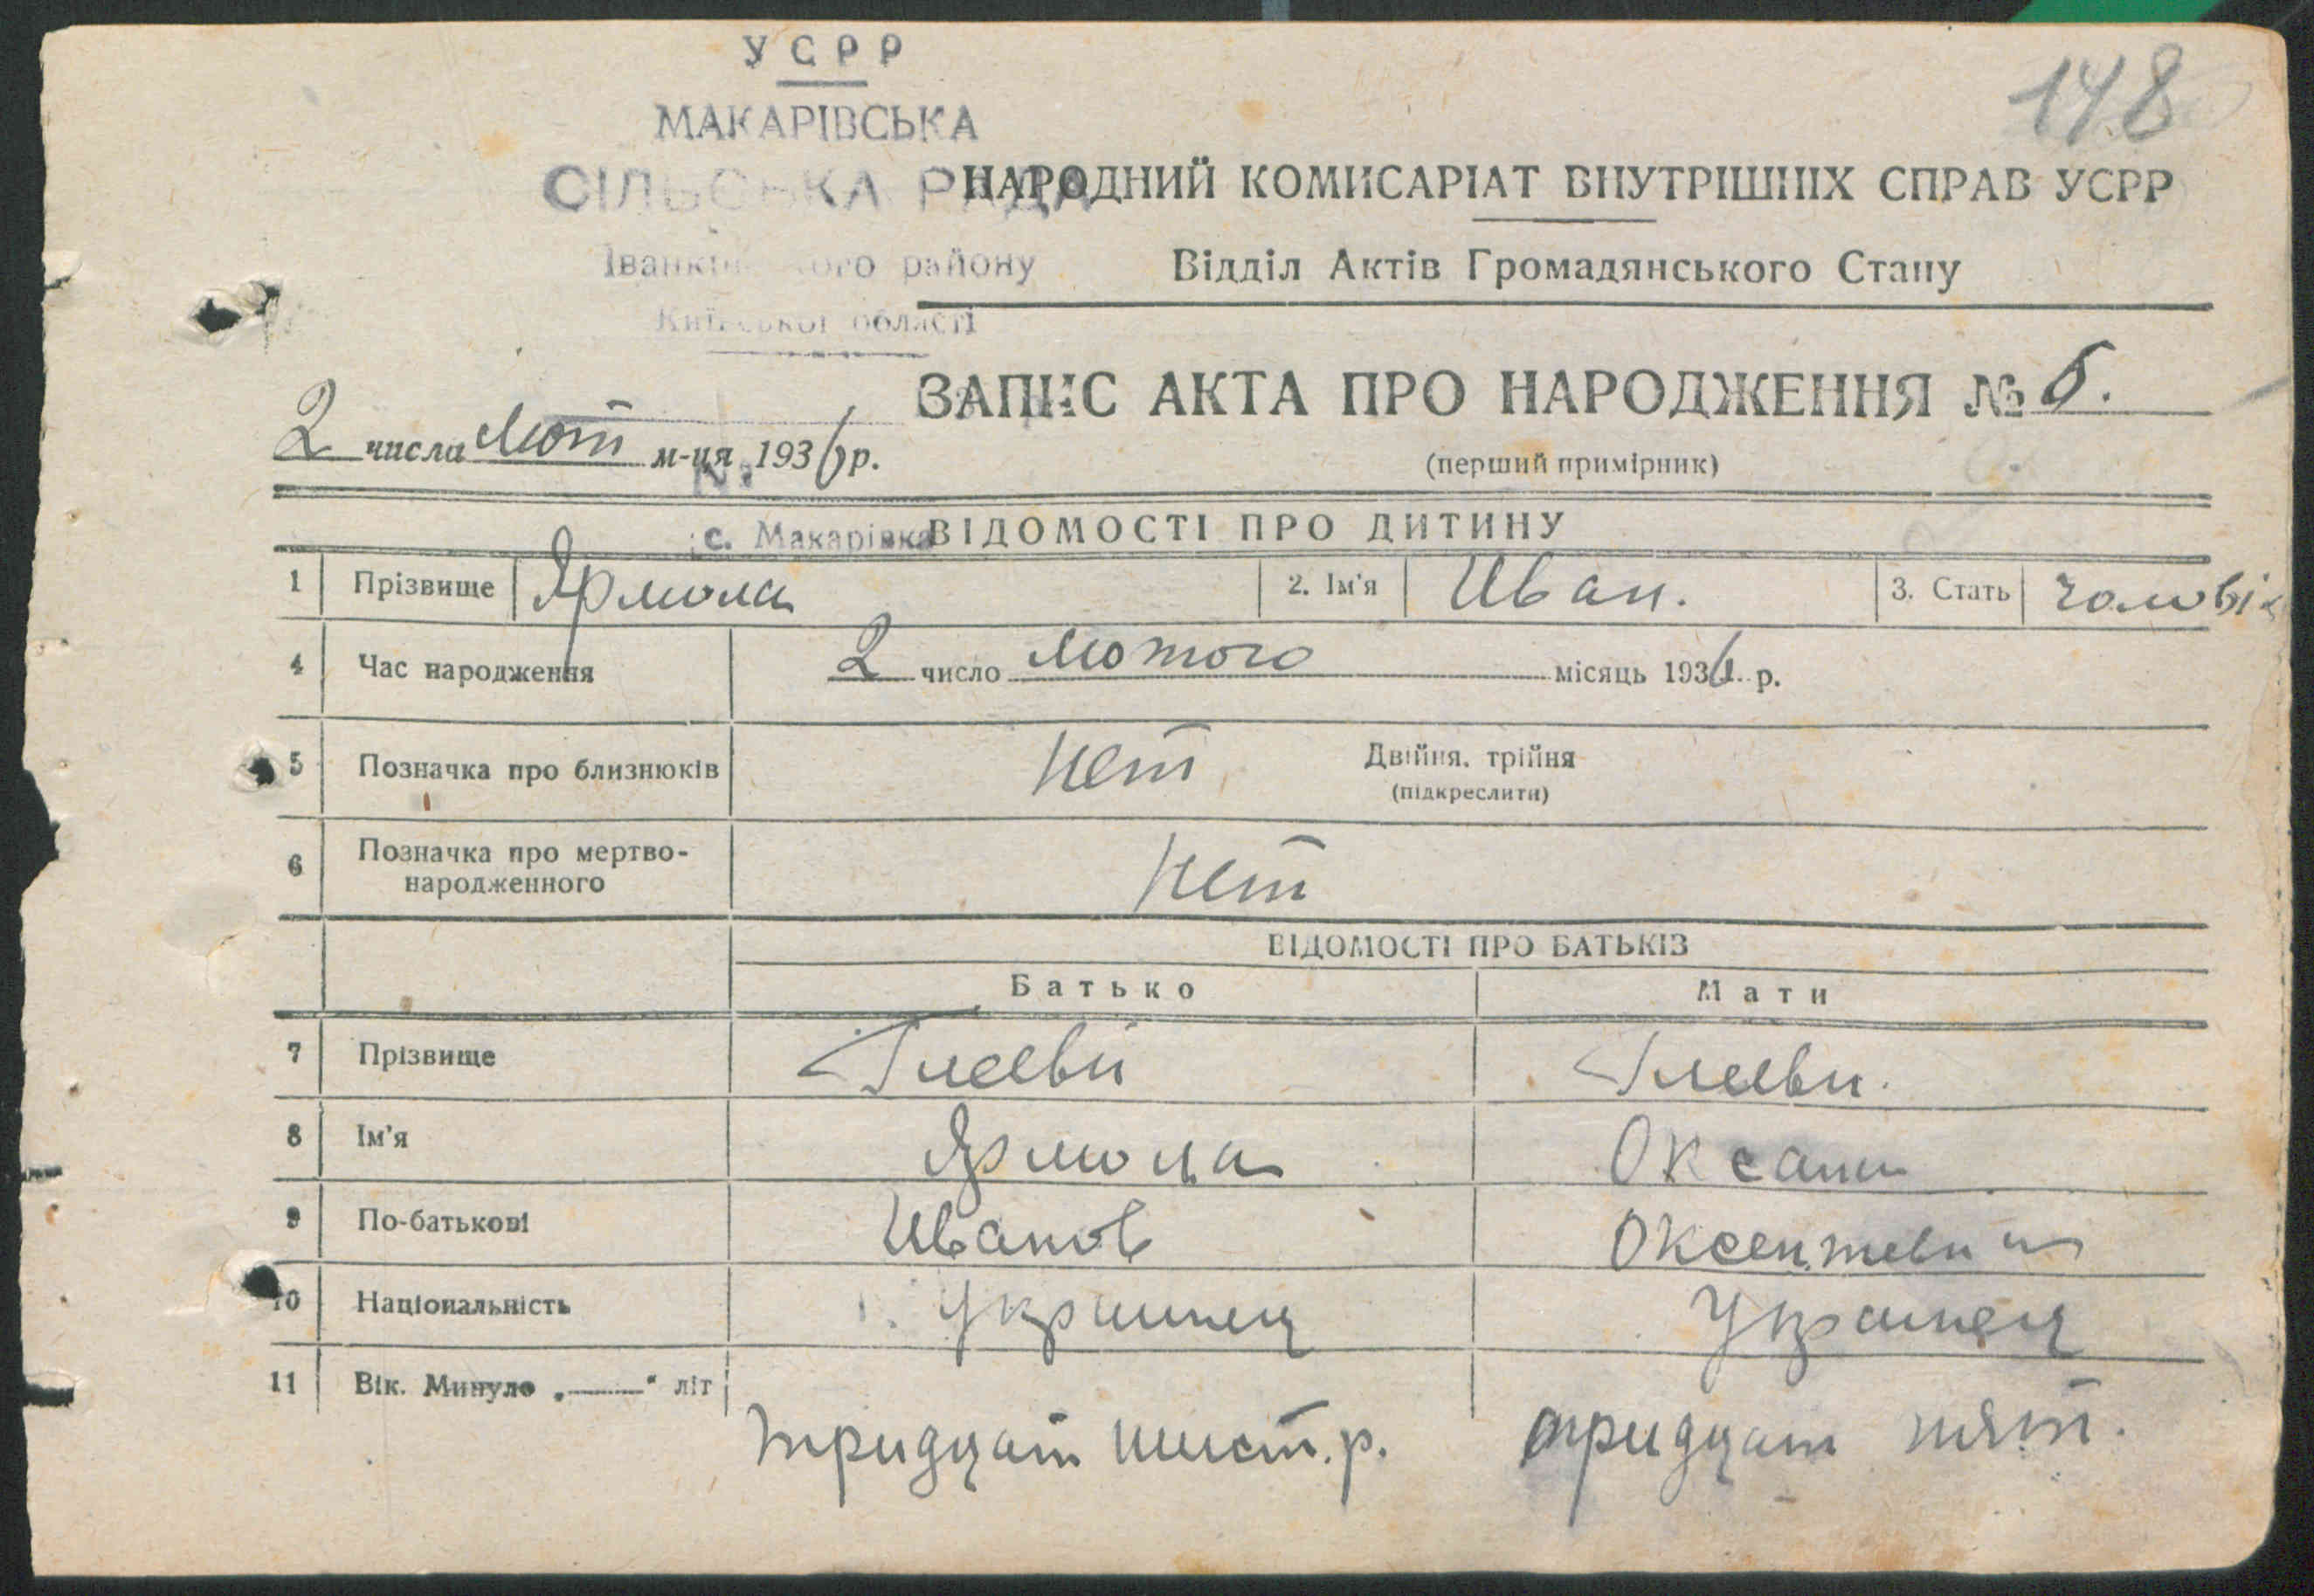 УСРР
148
МАКАРІВСЬКА
СІЛЬСЬКА РАДА
НАРОДНИЙ КОМИСАРІАТ ВНУТРІШНІХ СПРАВ УСРР
Іванківського району
Відділ Актів Громадянського Стану
Київської області
ЗАПИС АКТА ПРО НАРОДЖЕННЯ №
2 числа Лют м-ця 1936 р.
(перший примірник)
№
с. Макарівка
ВІДОМОСТІ ПРО ДИТИНУ
1 Прізвище Ярмола 2. Ім'я Иван. 3. Стать чоловік
4 Час народження 2 число лютого місяць 1936 р.
5 Позначка про близнюків Нет Двійня, трійня
(підкреслити)
6 Позначка про мертво-
народженного Нет
ВІДОМОСТІ ПРО БАТЬКІВ
Батько Мати
7 Прізвище
8 Ім'я Ярмола Оксана
9 По-батькові Иванов
10 Національність Украинец Украинец
11 Вік. Минуло „——“ літ
тридцат шист. р. тридцат пят.